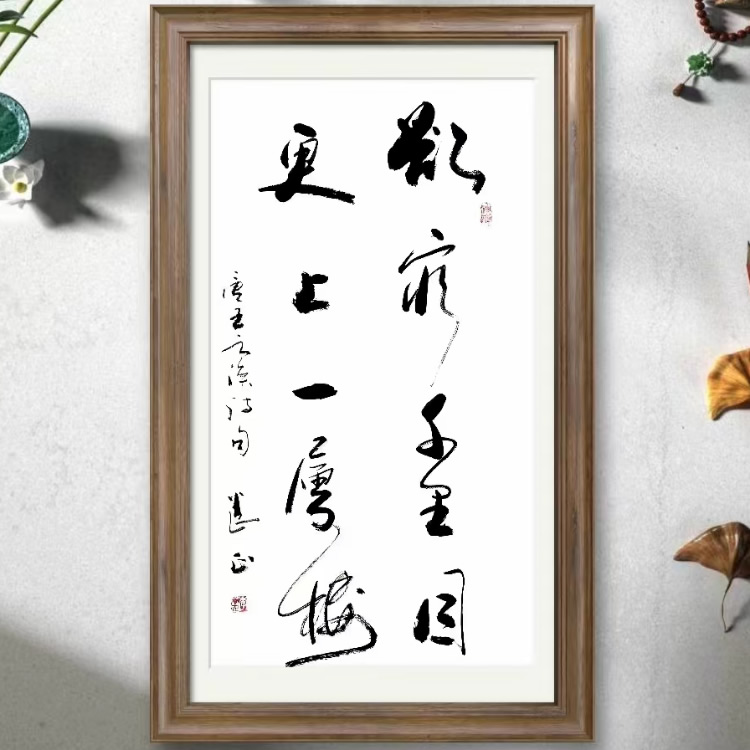 欲穷千里目
更上一层楼
唐王之涣诗句